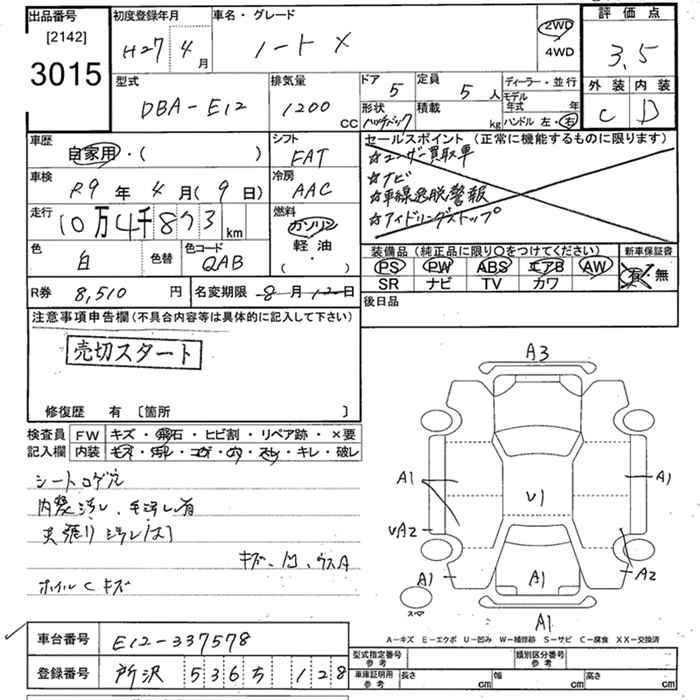 出品番号 初度登録年月 車名・グレード 2WD 評価点
[2142] H27 4月 ノート X 4WD 3.5
3015 外装 内装
型式 排気量 ドア 定員 ディーラー・並行
DBA-E12 1200 CC 5 5人 モデル年式 年 C D
形状 積載 kg ハンドル 左・右
ハッチバック
車歴 シフト セールスポイント (正常に機能するものに限ります)
自家用・( ) FAT ☆ユーザー買取車
車検 冷房 ☆ナビ
R9年 4月(9日) AAC ☆車線逸脱警報
走行 燃料 ☆アイドリングストップ
10万4千873km ガソリン
色 色替 色コード 軽油 装備品 (純正品に限り〇をつけてください) 新車保証書
白 QAB (・) PS PW ABS エアB AW 有・無
SR ナビ TV カワ
R券 8,510円 名変期限 8月12日 後日品
注意事項申告欄 (不具合内容等は具体的に記入して下さい)
売切スタート
修復歴 有 [箇所 ]
検査員 FW キズ・飛石・ヒビ割・リペア跡・×要
記入欄 内装 キズ・汚レ・コゲ・穴・スレ・キレ・破レ
シートコゲ穴
内装汚レ、毛汚レ有
天張り汚レ
キズ、凹、ウスA
ホイルCキズ
A3
A1 A1
V1
VA2
A1 A1 A2
スペア
A1
A-キズ E-エクボ U-凹み W-補修跡 S-サビ C-腐食 XX-交換済
車台番号 E12-337578 型式指定番号 参考 類別区分番号 参考
登録番号 所沢 536 ち 128 車庫証明用 参考 長さ cm 幅 cm 高さ cm